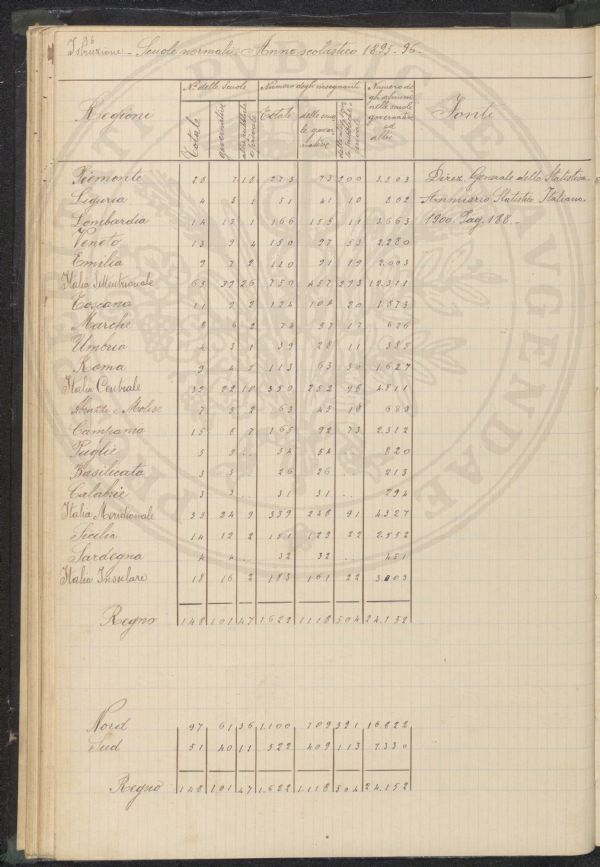 Istruzione - Scuole normali - Anno scolastico 1895-96 -
Regioni
No delle Scuole
Numero degli insegnanti
Numero degli alunni nelle scuole governative ed altre
Fonti
Totale
governative
altre pubbliche o private
Totale
delle scuole governative
Piemonte 25 7 18 273 73 200 3.563 Direz. Generale della Statistica.
Liguria 4 3 1 51 41 10 802 Annuario Statistico Italiano.
Lombardia 14 13 1 166 155 11 3.663 1900. Pag. 188.
Veneto 13 9 4 150 97 53 2.280
Emilia 9 7 2 110 91 19 2.003
Italia Settentrionale 65 39 26 750 457 293 12.311
Toscana 11 9 2 124 104 20 1.873
Marche 8 6 2 74 57 17 626
Umbria 4 3 1 39 28 11 385
Roma 9 4 5 113 63 50 1.627
Italia Centrale 32 22 10 350 252 98 4.511
Abruzzi e Molise 7 5 2 63 45 18 688
Campania 15 8 7 165 92 73 2.312
Puglie 5 5 .. 54 54 .. 820
Basilicata 3 3 .. 26 26 .. 213
Calabrie 3 3 .. 31 31 .. 294
Italia Meridionale 33 24 9 339 248 91 4.327
Sicilia 14 12 2 151 129 22 2.552
Sardegna 4 4 .. 32 32 .. 451
Italia Insulare 18 16 2 183 161 22 3.003
Regno 148 101 47 1622 1118 504 24.152
Nord 97 61 36 1.100 709 391 16.822
Sud 51 40 11 522 409 113 7.330
Regno 148 101 47 1.622 1.118 504 24.152